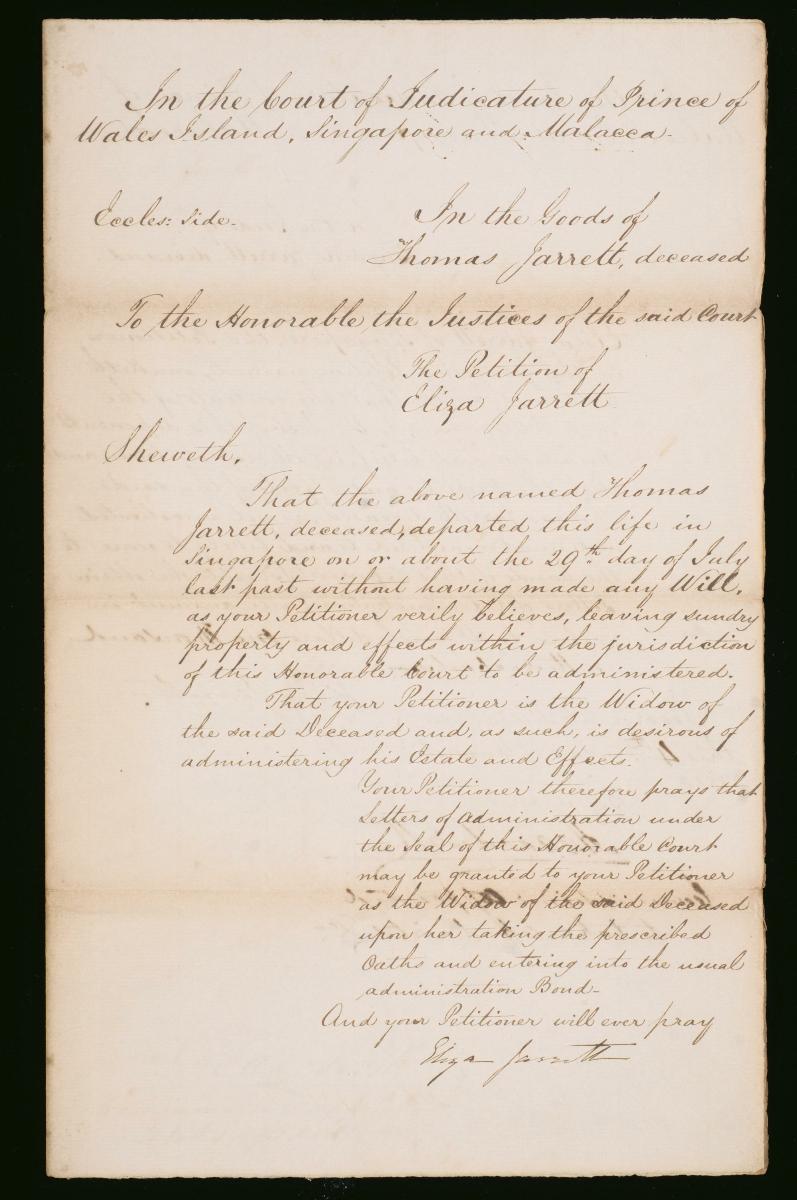 In the Court of Judicature of Prince of
Wales Island, Singapore and Malacca.
Eccles: Side.
In the Goods of
Thomas Jarrett, deceased
To the Honorable the Justices of the said Court
The Petition of
Eliza Jarrett
Sheweth,
That the above named Thomas
Jarrett, deceased, departed this life in
Singapore on or about the 29th day of July
last past without having made any Will,
as your Petitioner verily believes, leaving sundry
property and effects within the jurisdiction
of this Honorable Court to be administered.
That your Petitioner is the Widow of
the said Deceased and, as such, is desirous of
administering his Estate and Effects.
Your Petitioner therefore prays that
Letters of Administration under
the Seal of this Honorable Court
may be granted to your Petitioner
as the Widow of the said Deceased
upon her taking the prescribed
Oaths and entering into the usual
administration Bond-
And your Petitioner will ever pray
Eliza Jarrett